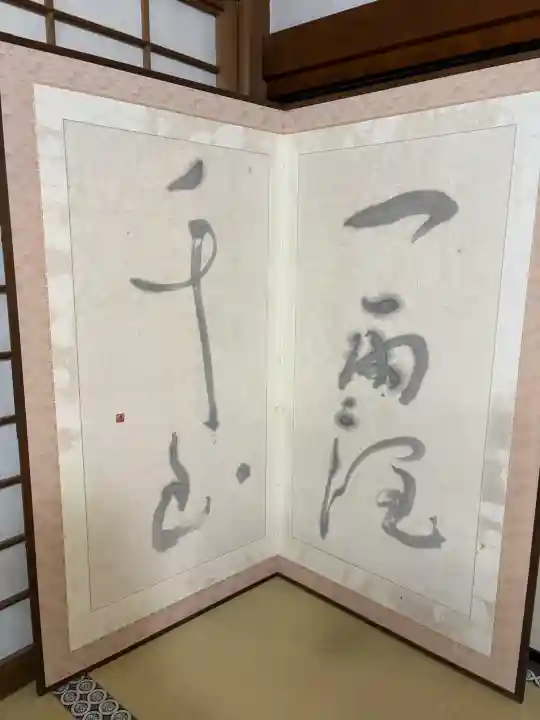 一雨潤
千山